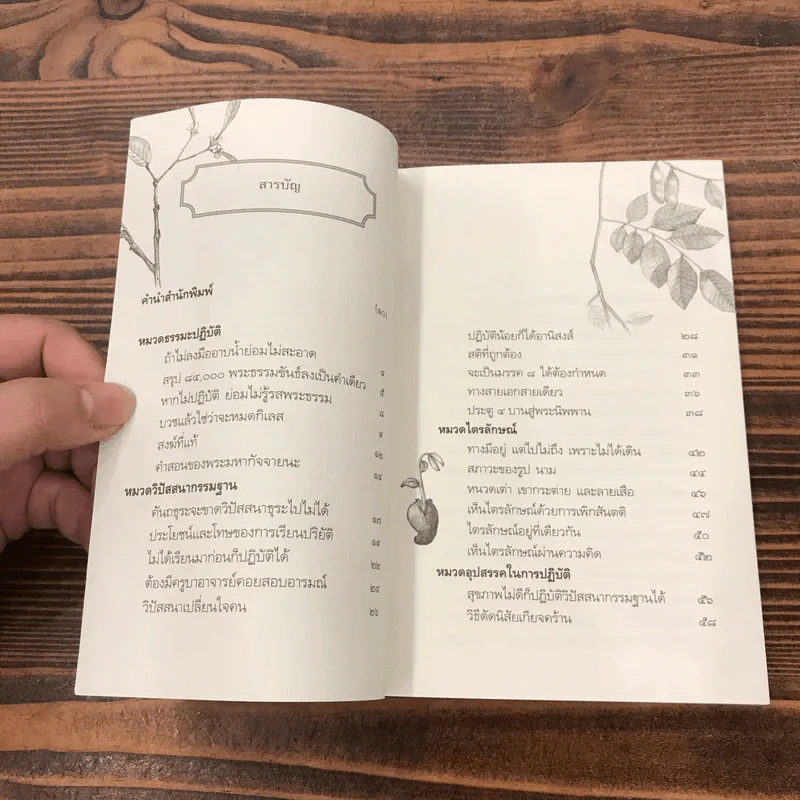 สารบัญ
คำนำสำนักพิมพ์ (๑๐)
หมวดธรรมะปฏิบัติ
ถ้าไม่ลงมืออาบน้ำย่อมไม่สะอาด ๔
สรุป ๘๔,๐๐๐ พระธรรมขันธ์ลงเป็นคำเดียว ๕
หากไม่ปฏิบัติ ย่อมไม่รู้รสพระธรรม ๘
บวชแล้วใช่ว่าจะหมดกิเลส ๙
สงฆ์ที่แท้ ๑๒
คำสอนของพระมหากัจจายนะ ๑๔
หมวดวิปัสสนากรรมฐาน
คันถธุระจะขาดวิปัสสนาธุระไปไม่ได้ ๑๗
ประโยชน์และโทษของการเรียนปริยัติ ๑๙
ไม่ได้เรียนมาก่อนก็ปฏิบัติได้ ๒๒
ต้องมีครูบาอาจารย์คอยสอบอารมณ์ ๒๔
วิปัสสนาเปลี่ยนใจคน ๒๖
ปฏิบัติน้อยก็ได้อานิสงส์ ๒๘
สติที่ถูกต้อง ๓๑
จะเป็นมรรค ๘ ได้ต้องกำหนด ๓๓
ทางสายเอกสายเดียว ๓๖
ประตู ๔ บานสู่พระนิพพาน ๓๘
หมวดไตรลักษณ์
ทางมีอยู่ แต่ไปไม่ถึง เพราะไม่ได้เดิน ๔๒
สภาวะของรูป นาม ๔๔
หนวดเต่า เขากระต่าย และลายเสือ ๔๖
เห็นไตรลักษณ์ด้วยการเพิกสันตติ ๔๗
ไตรลักษณ์อยู่ที่เดียวกัน ๕๐
เห็นไตรลักษณ์ผ่านความคิด ๕๒
หมวดอุปสรรคในการปฏิบัติ
สุขภาพไม่ดีก็ปฏิบัติวิปัสสนากรรมฐานได้ ๕๖
วิธีดัดนิสัยเกียจคร้าน ๕๘